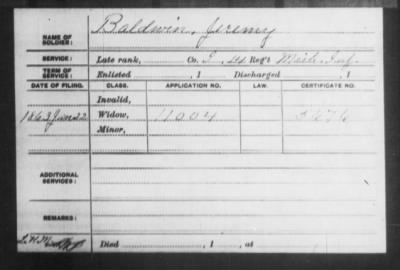 NAME OF SOLDIER: Baldwin, Jeremy
SERVICE: Late rank, Co. I, Reg't Mich. Inf.
TERM OF SERVICE: Enlisted , 1 Discharged , 1
DATE OF FILING. CLASS. APPLICATION NO. LAW. CERTIFICATE NO.
Invalid,
1863 June 22 Widow, 11004
Minor,
ADDITIONAL SERVICES:
REMARKS:
Died , 1 , at